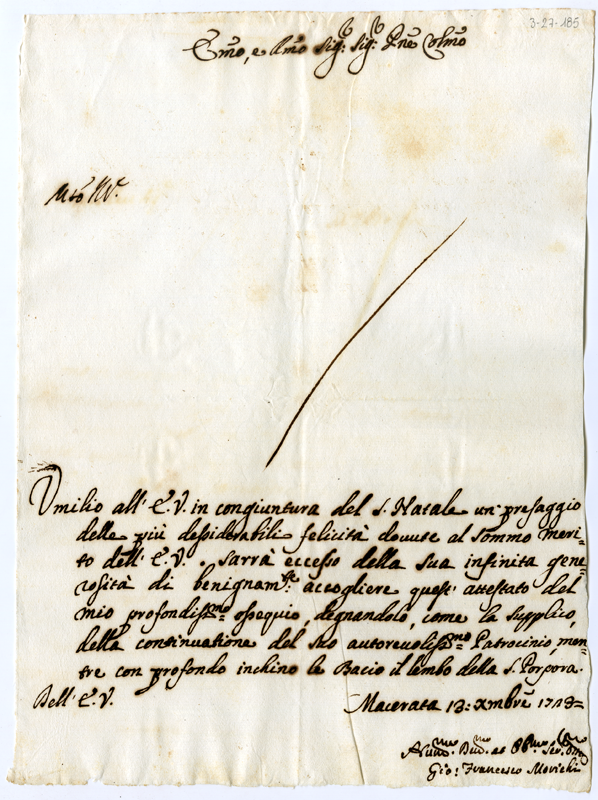 3-27-185
Emo, e Rmo Sig: Sig: Pne Colmo
Umilio all' E. V. in congiuntura del S. Natale un presaggio
delle più dessiderabili felicità douute al sommo meri=
to dell' E. V. . Sarrà eccesso della sua infinita gene=
rosità di benignam:te accogliere quest' attestato del
mio profondiss:mo ossequio, degnandolo, come la supplico,
della continuatione del suo autoreuoliss:mo Patrocinio, men=
tre con profondo inchino le Bacio il lembo della S. Porpora.
Dell' E. V.
Macerata 13: Xmbre
Gio: Francesco